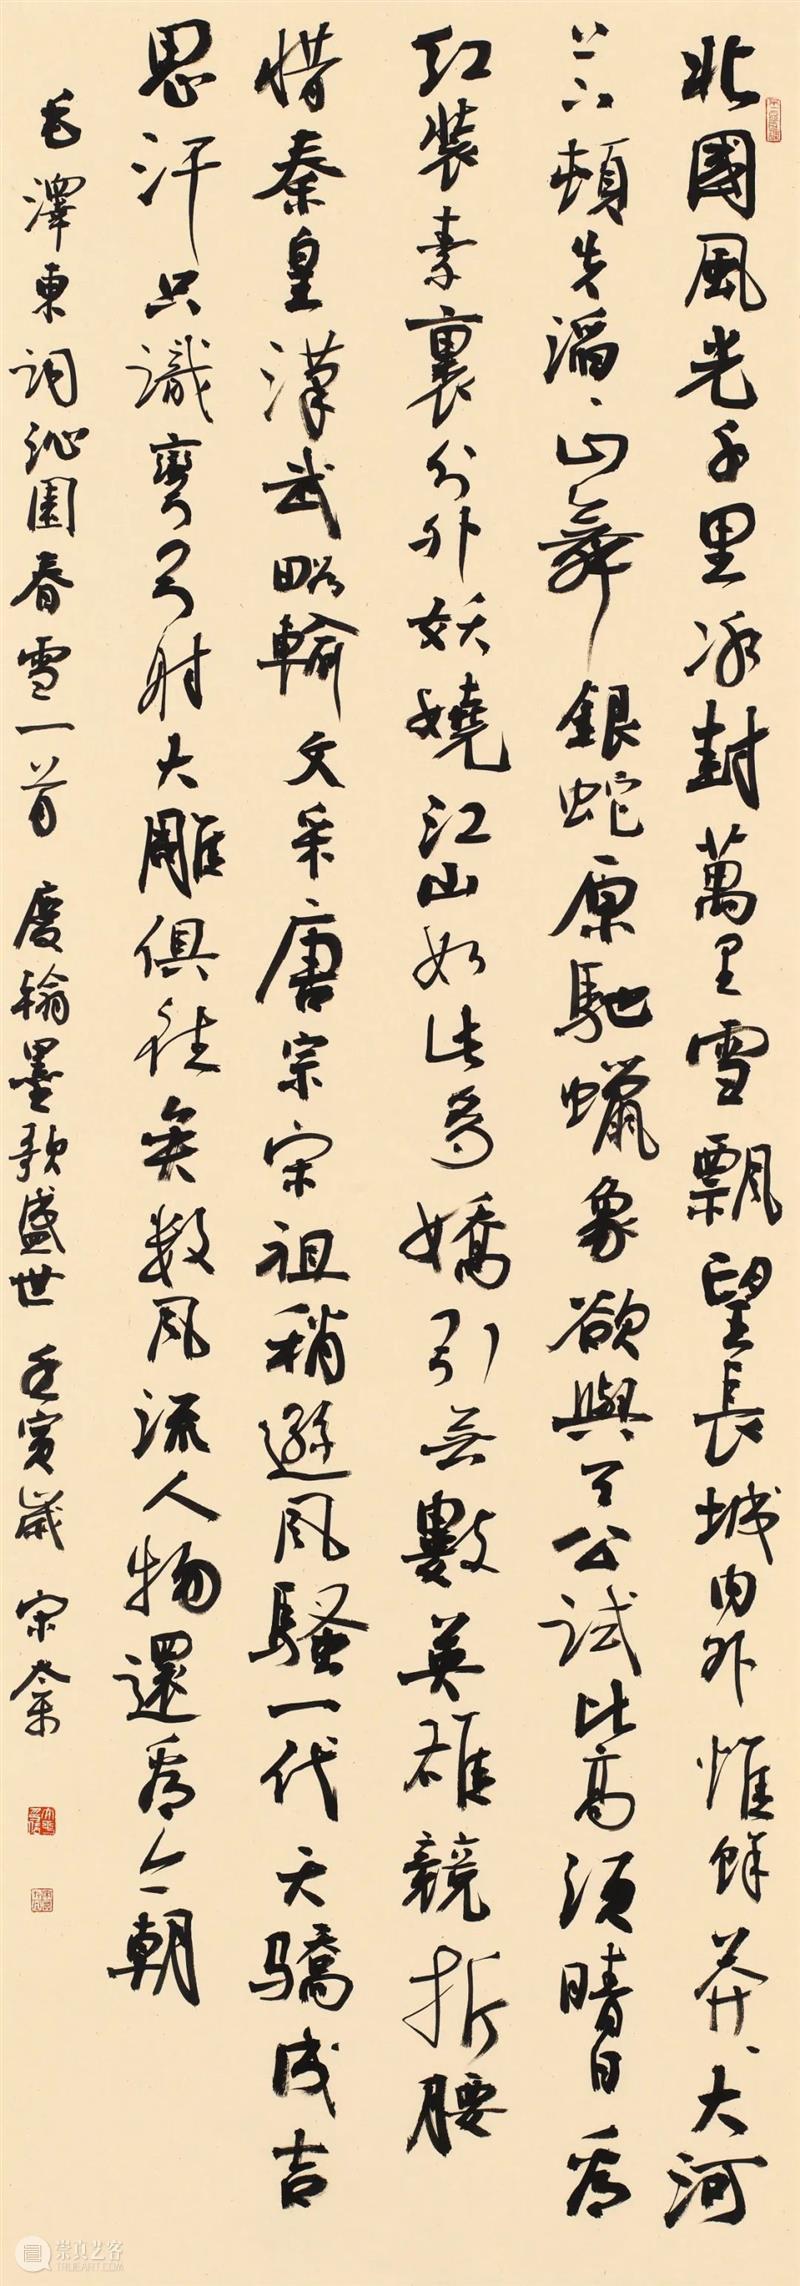 北國風光千里冰封萬里雪飄望長城內外惟餘莽、大河
上下頓失滔、山舞銀蛇原馳蠟象欲與天公試比高須晴日看
紅裝素裹分外妖嬈江山如此多嬌引無數英雄競折腰
惜秦皇漢武略輸文采唐宗宋祖稍遜風騷一代天驕成吉
思汗只識彎弓射大雕俱往矣数風流人物還看今朝
毛澤東詞沁園春雪一首 慶翰墨歌盛世 壬寅歲 宋
崇真艺客
TRUEART.COM